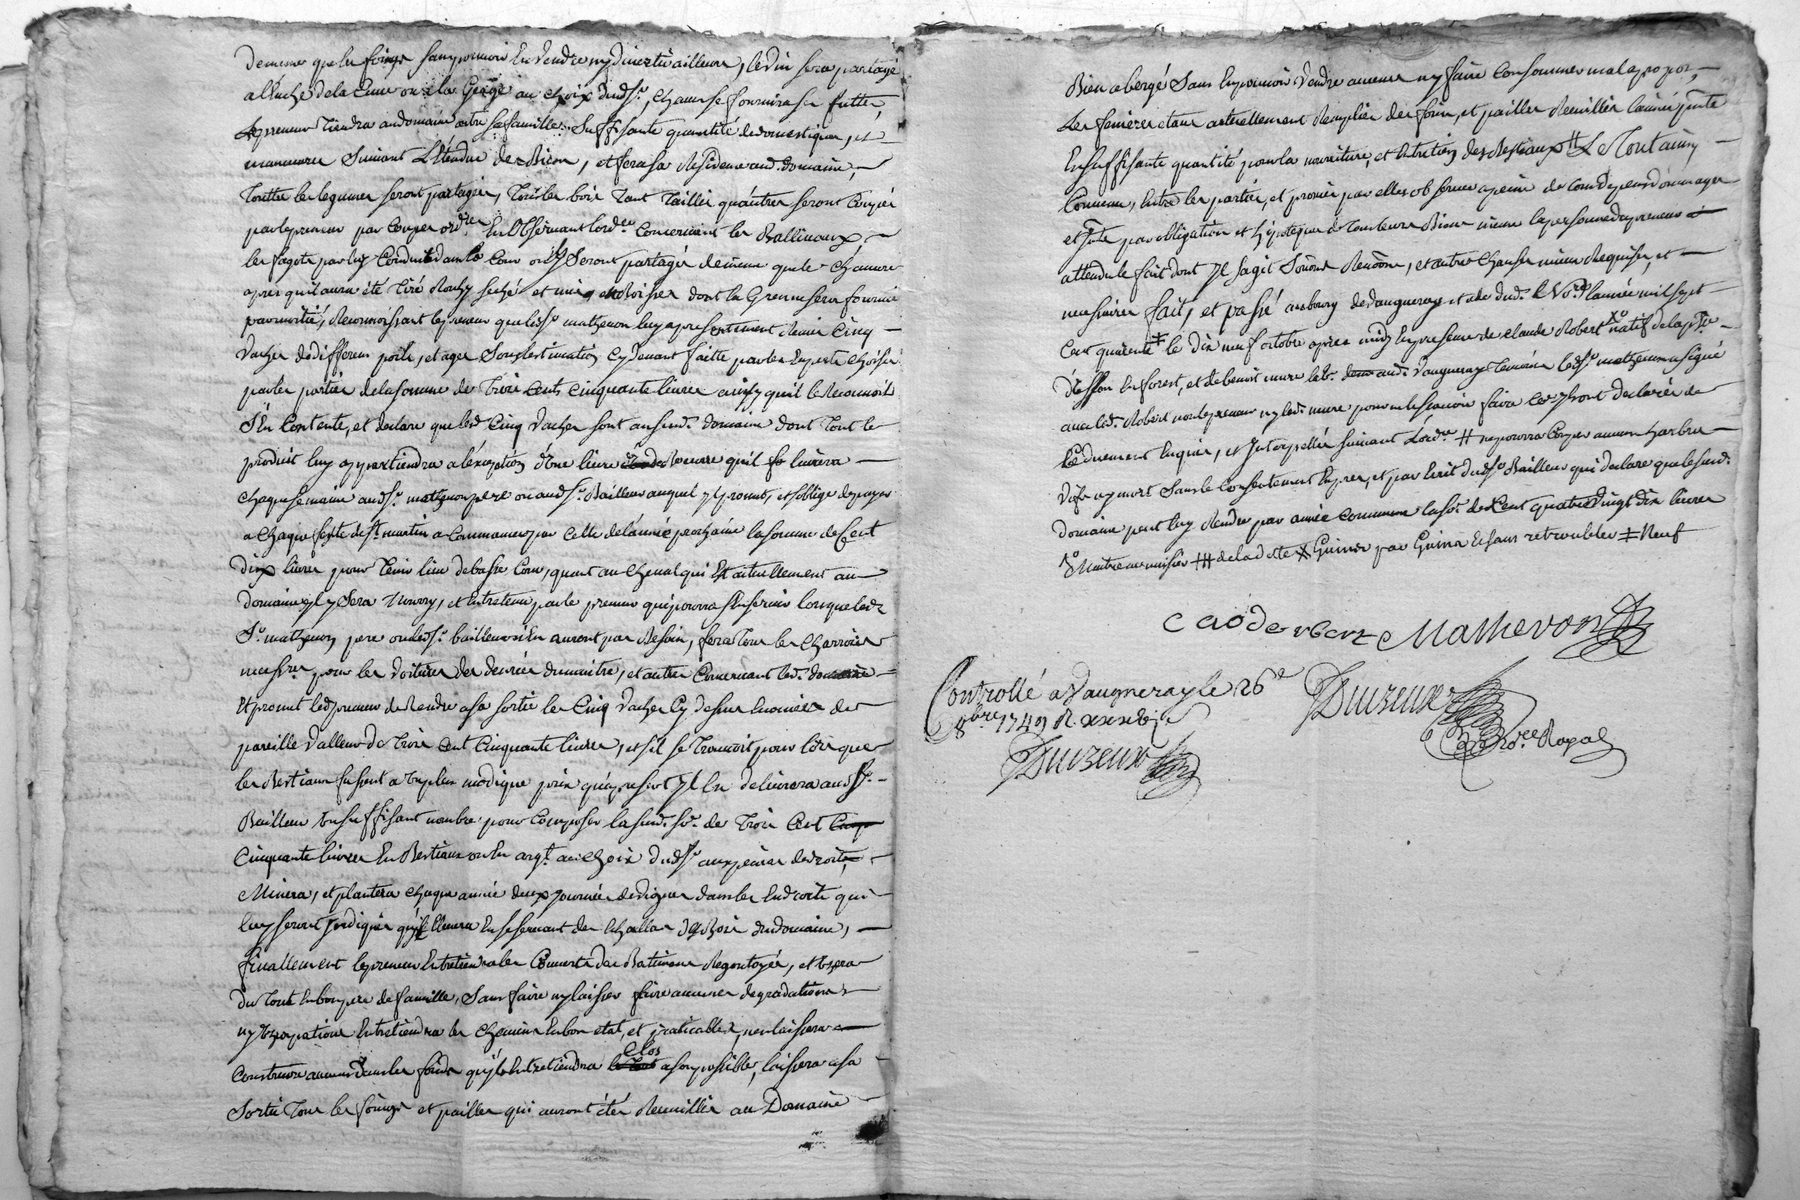 demeure que les foings sans pouvoir en vendre ny divertir ailleurs, le vin sera partagé
a l'anche de la Cuve ou a la Gerge au choix dud. sr., chacun se fournira sa futte,
Le preneur tiendra au domaine outre sa famille suffisante quantité de domestiques, et
manœuvre suivant L'étendue des Biens, et fera sa Residence aud. domaine,
Toutes les legumes seront partagées, tous les bois tant taillis qu'autres seront Coupés
par le preneur par Coupes ordres En Observant l'ordce Concernant les Ballivaux,
les fagots par luy Conduits dans la Cour ou ils Seront partagés de même que le Chanvre
apres qu'il aura été tiré Rouhy seché et mis dont la Grenne sera fournie
par moitié, Reconnoissant le preneur que led. sr. mathevon luy a presentement Remis Cinq
vaches de differens poils, et ages Sous l'estimation Cy devant faitte par les Experts Choisis
par les parties de la somme de Trois Cents Cinquante livres ainsy qu'il le Reconnoit
S'En Contente, et declare que led. Cinq vaches sont au susd. domaine dont tout le
produit luy appartiendra a l'exception d'une livre de Beurre qu'il livrera
Chaque semaine aud. sr. mathevon pere ou aud. sr. Bailleur auquel il promet, et s'oblige de payer
a Chaque feste de st. martin a Commancer par Celle de l'année prochaine la somme de Cent
Dix livres pour Tenir lieu de basse Cour, quant au Cheval qui Est actuellement au
domaine il y Sera Nourry, et Entretenu par le preneur qui pourra s'En servir lorsque led.
Sr. mathevon pere ou led. sr. bailleur n'En auront pas Besoin, fera tous les Charrois
necessres. pour les voitures des denrées du maitre, et autres Concernant led. domaine
Et promet led. preneur de Rendre a sa sortie les Cinq vaches Cy dessus Enoncées de
pareille valleur de Trois Cent Cinquante livres, et s'il se trouvoit pour lors que
les Bestiaux fussent a un plus modique prix qu'a present Il En delivrera aud. sr.
Bailleur un suffisant nombre pour Composer la susd. se. de Trois Cent
Cinquante livres En Bestiaux ou En argt. au Choix dud. sr. aux peines de droit,
Minera, et plantera Chaque année deux journées de vignes dans les Endroits qui
luy seront Indiqués qu'il Elevera En se servant des Echallas du Bois du domaine,
finallement le preneur Entretiendra les Couverts des Batimens Regoutoyés, et usera
du tout En bon pere de famille, Sans faire ny laisser faire aucunes degradations
ny Usurpations Entretiendra les Chemins En bon etat, et praticables, n'en laissera
Construire aucuns dans les fonds qu'il Entretiendra Clos a son possible, laissera a sa
Sortie tous les foings et pailles qui auront étés Recuillis au Domaine
Bien abergé Sans En pouvoir vendre aucuns ny faire Consommer mal a propos,
Les fenieres etant actuellement Remplies des foin, et pailles Recuillis l'année presente
En suffisante quantité pour la nourriture, et Entretien des Bestiaux # Le Tout ainsy
Convenu, Entre les parties, et promis par elles observer a peine de tous depens dommages
et Ints. par obligation et hypoteque de tous leurs Biens même la personne du preneur
attendu le fait dont Il sagit Soûmons Renôons, et autres Clauses mieux Requises, et
necessaires fait, et passé au bourg de vaugneray etude dud. Nore. l'année mil sept
Cent quarente ‡ le dix neuf octobre apres midy En presence de claude Robert natif de la psse
d'Essom En forest, et de benoit mure labr. aud. vaugneray temoins led. sr. mathevon a signé
avec led. Robert non le preneur ny led. mure pour ne le sçavoir faire Ce qu'ils ont declarés de
Ce duement Enquis, et Interpellés suivant L'ordce # ne pourra Couper aucun harbres
vifs ny mort Sans le Consentement Expres, et par Ecrit dud. sr. Bailleur qui declare que le susd.
domaine peut luy Rendre par année Commune la se. de Cent quatre vingt dix livres
Xo Maitre menuisier ## de lad. ste X Guimer par Guimer Et sans retroubles ‡ Neuf
Mathevon
Controllé a Vaugneray le 26e
8bre 1749 R.
Duvzeux
Duvzeux
Nore. Royal